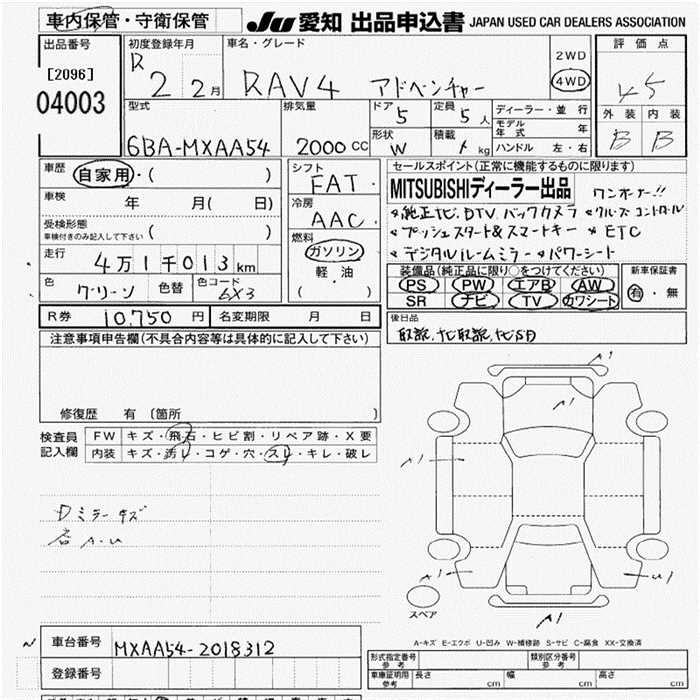 車内保管・守衛保管
JU 愛知 出品申込書 JAPAN USED CAR DEALERS ASSOCIATION
出品番号
[2096]
04003
初度登録年月
R 2 2月
車名・グレード
RAV4 アドベンチャー
2WD
4WD
評価点
4.5
外装 内装
B B
型式
6BA-MXAA54
排気量
2000 CC
ドア 5
定員 5人
形状 W
積載 kg
ディーラー・並行
モデル年式 年
ハンドル 左・右
車歴 自家用・( )
車検 年 月( 日)
受検形態
車検付きのみ記入して下さい ( )
走行 4万1千013km
色 グリーン 色替
色コード 6X3
シフト FAT
冷房 AAC
燃料 ガソリン
軽・油
( )
セールスポイント(正常に機能するものに限ります)
MITSUBISHIディーラー出品 ワンオーナー!!
*純正ナビ、DTV、バックカメラ *クルーズコントロール
*プッシュスタート&スマートキー *ETC
*デジタルルームミラー *パワーシート
装備品(純正品に限り○をつけてください)
PS PW エアB AW
SR ナビ TV カワシート
新車保証書
有・無
R券 10,750円
名変期限 月 日
後日品
取説、ナビ取説、ナビSD
注意事項申告欄(不具合内容等は具体的に記入して下さい)
修復歴 有〔箇所 〕
検査員記入欄
FW キズ・飛石・ヒビ割・リペア跡・X要
内装 キズ・汚レ・コゲ・穴・スレ・キレ・破レ
Dミラーキズ
各A・U
A1
A1
A1
A1
U1
A1
スペア
A-キズ E-エクボ U-凹み W-補修跡 S-サビ C-腐食 XX-交換済
車台番号 MXAA54-2018312
登録番号
型式指定番号 参考
類別区分番号 参考
車庫証明用 参考 長さ cm 幅 cm 高さ cm